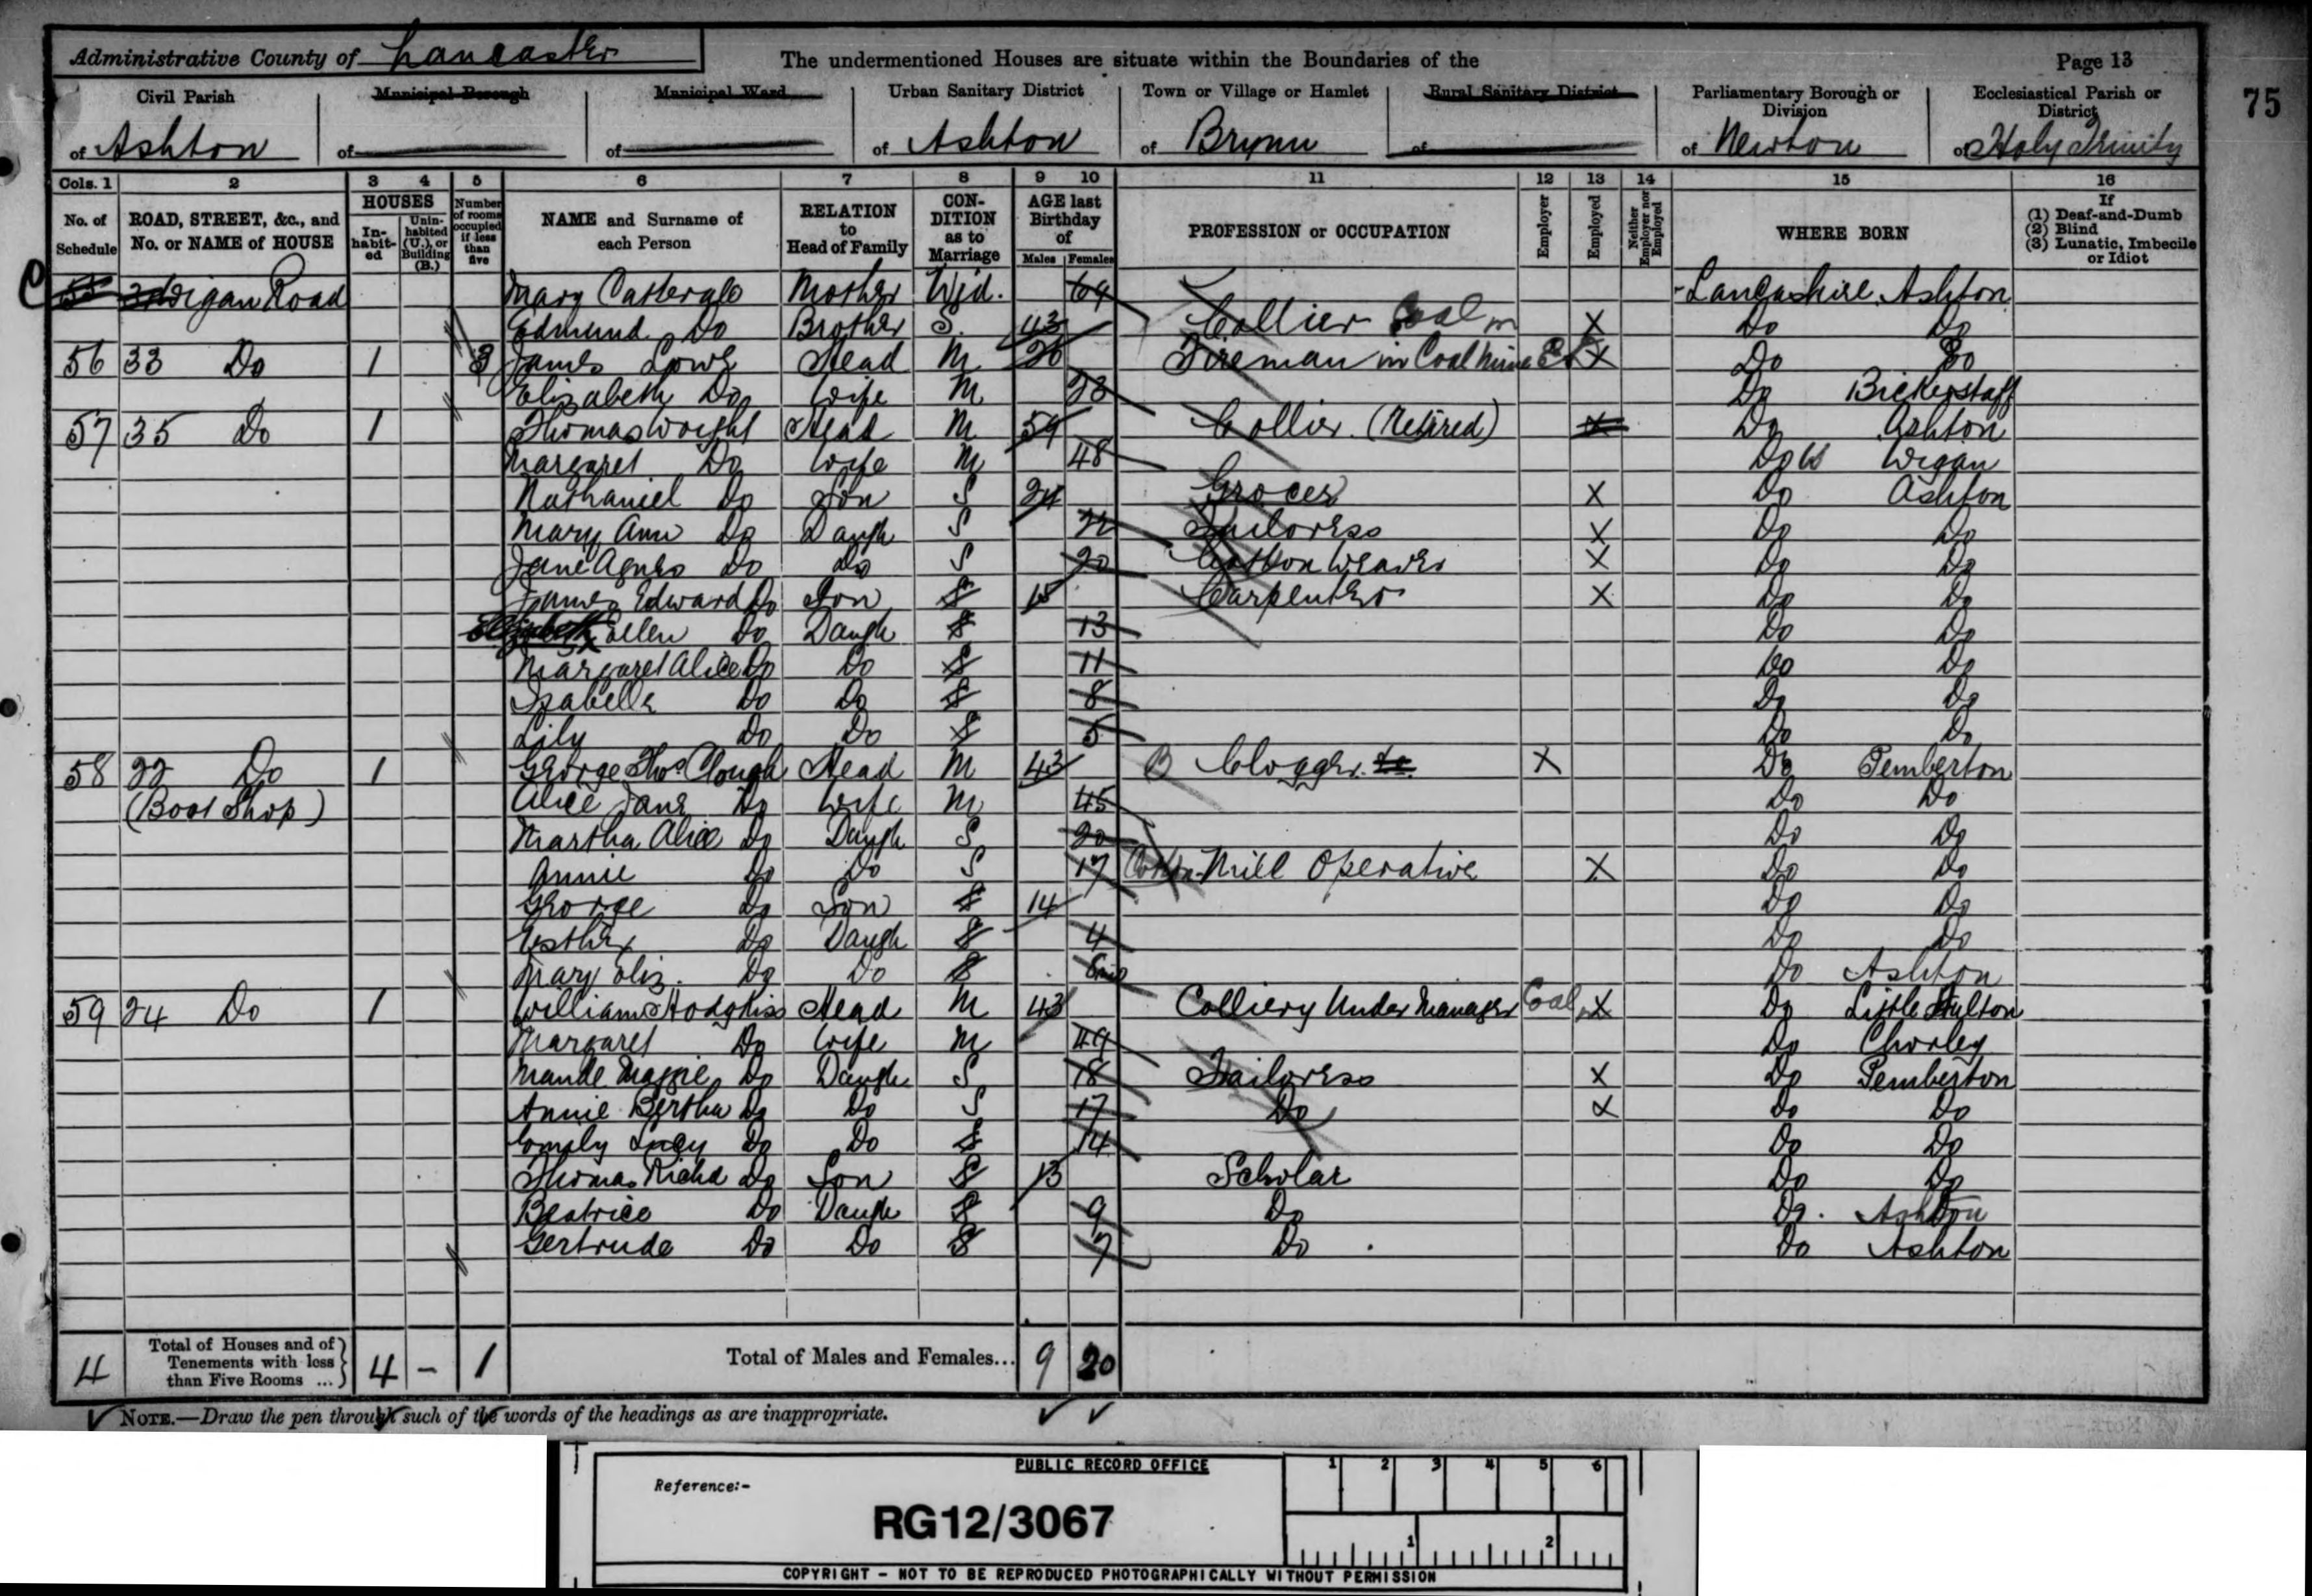 Administrative County of Lancaster The undermentioned Houses are situate within the Boundaries of the Page 13
Civil Parish Municipal Borough Municipal Ward Urban Sanitary District Town or Village or Hamlet Rural Sanitary District Parliamentary Borough or Division Ecclesiastical Parish or District 75
of Ashton of of of Ashton of Brynn of of Newton of Holy Trinity
Cols. 1 2 3 4 5 6 7 8 9 10 11 12 13 14 15 16
No. of Schedule ROAD, STREET, &c., and No. or NAME of HOUSE HOUSES In-habit-ed Unin-habited (U.), or Building (B.) Number of rooms occupied if less than five NAME and Surname of each Person RELATION to Head of Family CON-DITION as to Marriage AGE last Birthday of Males Females PROFESSION or OCCUPATION Employer Employed Neither Employer nor Employed WHERE BORN If (1) Deaf-and-Dumb (2) Blind (3) Lunatic, Imbecile or Idiot
C Wigan Road Mary Catterall Mother Wid. 69 Lancashire Ashton
Edmund Do Brother S. 43 Collier Coal m X Do Do
56 33 Do 1 3 James Lowe Head M 26 Fireman in Coal Mine X Do Do
Elizabeth Do Wife M 28 Do Bickerstaff
57 35 Do 1 Thomas Wright Head M 59 Collier (Retired) X Do Ashton
Margaret Do Wife M 48 Do Wigan
Nathaniel Do Son S 24 Grocer X Do Ashton
Mary Ann Do Daugh S 22 Tailoress X Do Do
Jane Agnes Do Do S 20 Cotton Weaver X Do Do
James Edward Do Son S 15 Carpenter X Do Do
Elizabeth Ellen Do Daugh S 13 Do Do
Margaret Alice Do Do S 11 Do Do
Isabella Do Do S 8 Do Do
Lily Do Do S 5 Do Do
58 22 Do 1 George Thos Clough Head M 43 B Clogger X Do Pemberton
(Boot Shop) Alice Jane Do Wife M 45 Do Do
Martha Alice Do Daugh S 20 Do Do
Annie Do Do S 17 Cotton Mill Operative X Do Do
George Do Son S 14 Do Do
Esther Do Daugh S 4 Do Do
Mary Eliz. Do Do S 6mo Do Ashton
59 24 Do 1 William Hodgkiss Head M 43 Colliery Under Manager Coal m X Do Little Hulton
Margaret Do Wife M 49 Do Chorley
Maude Maggie Do Daugh S 18 Tailoress X Do Pemberton
Annie Bertha Do Do S 17 Do X Do Do
Lucy Do Do S 14 Do Do
Thomas Richd Do Son S 13 Scholar Do Do
Beatrice Do Daugh S 9 Do Do Ashton
Gertrude Do Do S 7 Do Do Ashton
4 Total of Houses and of Tenements with less than Five Rooms ... 4 – 1 Total of Males and Females... 9 20
NOTE.—Draw the pen through such of the words of the headings as are inappropriate.
PUBLIC RECORD OFFICE 1 2 3 4 5 6
Reference:-
RG12/3067
1 2
COPYRIGHT - NOT TO BE REPRODUCED PHOTOGRAPHICALLY WITHOUT PERMISSION